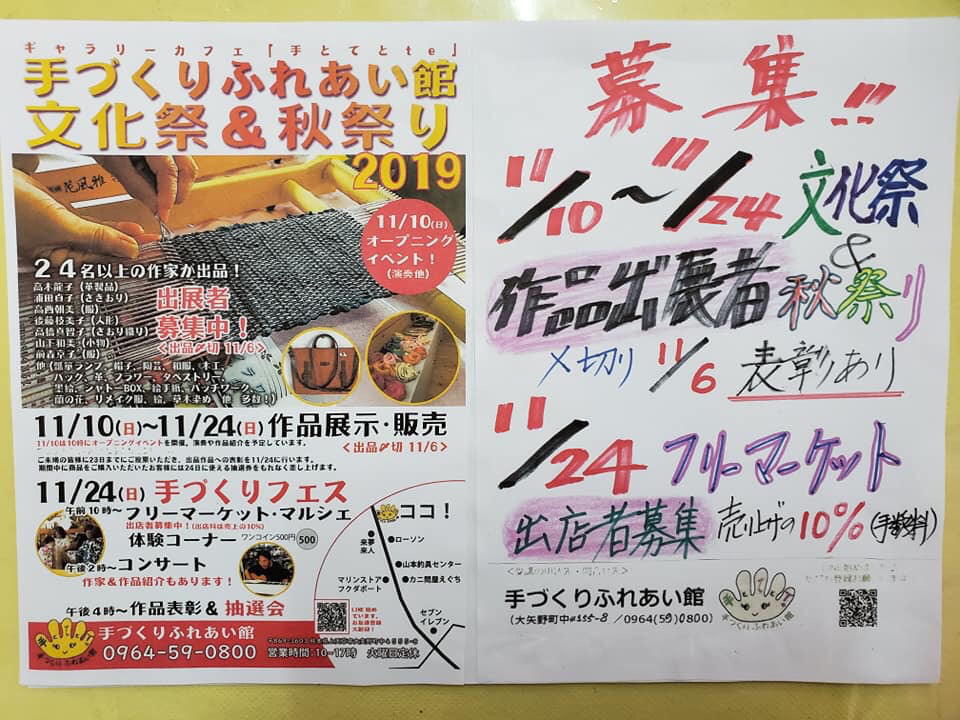 ギャラリーカフェ『手とてとte』
手づくりふれあい館
文化祭&秋祭り
2019
花風雅
11/10(日)
オープニング
イベント!
(演奏他)
24名以上の作家が出品!
高木龍子(革製品)
浦田直子(さきおり)
高西朝美(服)
後藤技美子(人形)
高橋真智子(さおり織り)
山下和美(小物)
前森京子(服)
出展者
募集中!
<出品〆切 11/6>
11/10(日)~11/24(日)作品展示・販売
11/10は10時にオープニングイベントを開催。演奏や作品紹介を予定しています。
<出品〆切 11/6>
ご来場の皆様に23日までにご投票いただき、出品作品への表彰を11/24に行います。
期間中に商品をご購入いただいたお客様には24日に使える抽選券をもれなく差し上げます。
11/24(日)手づくりフェス
午前10時~フリーマーケット・マルシェ
出店者募集中!(出店料は売上の10%)
体験コーナー ワンコイン500円 500
午後2時~コンサート
作家&作品紹介もあります!
午後4時~作品表彰&抽選会
ココ!
来夢
来人
ローソン
山本釣具センター
カニ問屋えぐち
マリンストア
フクダポート
セブン
イレブン
LINE始め
ています。
お友達登録
大歓迎!
手づくりふれあい館
0964-59-0800
営業時間:10~17時 火曜日定休
募集!!
11/10~11/24 文化祭
&
作品出展者 秋祭り
〆切り 11/6 表彰あり
11/24 フリーマーケット
出店者募集 売り上げの10%(手数料)
手づくりふれあい館
(大矢野町中4555-8 /0964(59)0800)
手とてとte
手づくりふれあい館